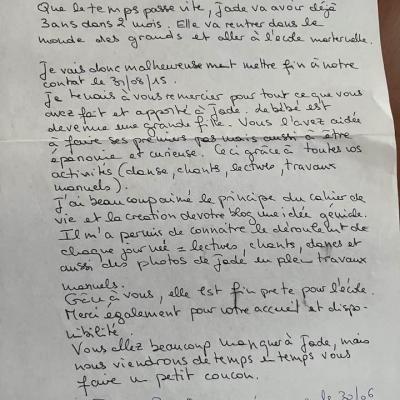 Que le temps passe vite, Jade va avoir déjà
3 ans dans 2 mois. Elle va rentrer dans le
monde des grands et aller à l'école maternelle.
Je vais donc malheureusement mettre fin à notre
contrat le 31/08/15.
Je tenais à vous remercier pour tout ce que vous
avez fait et apporté à Jade. Le bébé est
devenue une grande fille. Vous l'avez aidée
à faire ses premiers pas mais aussi à être
épanouie et curieuse. Ceci grâce à toutes vos
activités (danse, chants, lectures, travaux
manuels).
J'ai beaucoup aimé le principe du cahier de
vie et la création de votre blog une idée géniale.
Il m'a permis de connaître le déroulement de
chaque journée = lectures, chants, danses et
aussi des photos de Jade en plein travaux
manuels.
Grâce à vous, elle est fin prête pour l'école.
Merci également pour votre accueil et dispo-
nibilité.
Vous allez beaucoup manquer à Jade, mais
nous viendrons de temps en temps vous
faire un petit coucou.
le 30/06